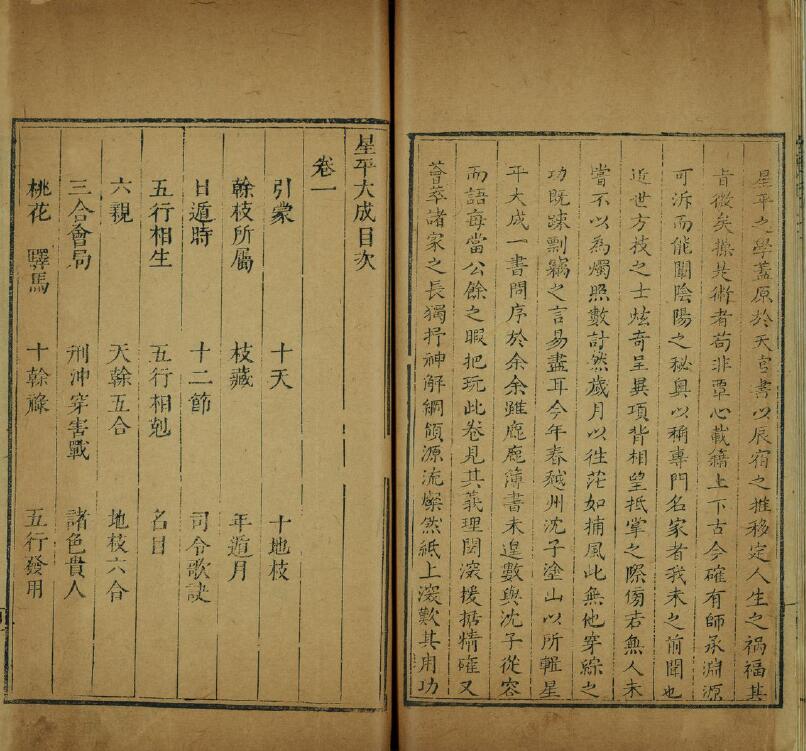 星平之學蓋原於天官書以辰宿之推移定人生之禍福其
旨微矣操其術者苟非覃心載籍上下古今確有師承淵源
可泝而能闡陰陽之秘奧以稱專門名家者我未之前聞也
近世方技之士炫奇呈異項背相望抵掌之際傍若無人未
嘗不以為燭照數計然歲月以往茫如捕風此無他穿綜之
功既疎剽竊之言易盡耳今年春越州沈子塗山以所輯星
平大成一書問序於余余雖鹿鹿簿書未遑數與沈子從容
而語每當公餘之暇把玩此卷見其義理閎深援據精確又
薈萃諸家之長獨抒神解綱領源流燦然紙上深歎其用功
星平大成目次
卷一
引蒙 十天 十地枝
幹枝所屬 枝藏 年遁月
日遁時 十二節 司令歌訣
五行相生 五行相剋 名目
六親 天幹五合 地枝六合
三合會局 刑沖穿害戰 諸色貴人
桃花 驛馬 十幹祿 五行發用